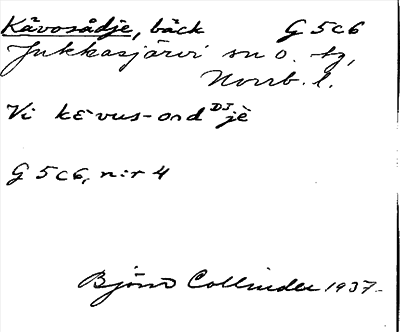 Kåvosådjè, bäck G 5 c 6
Jukkasjärvi sn o. tg,
Norrb. l.
Vi kēvus-ord DJ jè
G 5 c 6, n:r 4
Björn Collinder 1937.